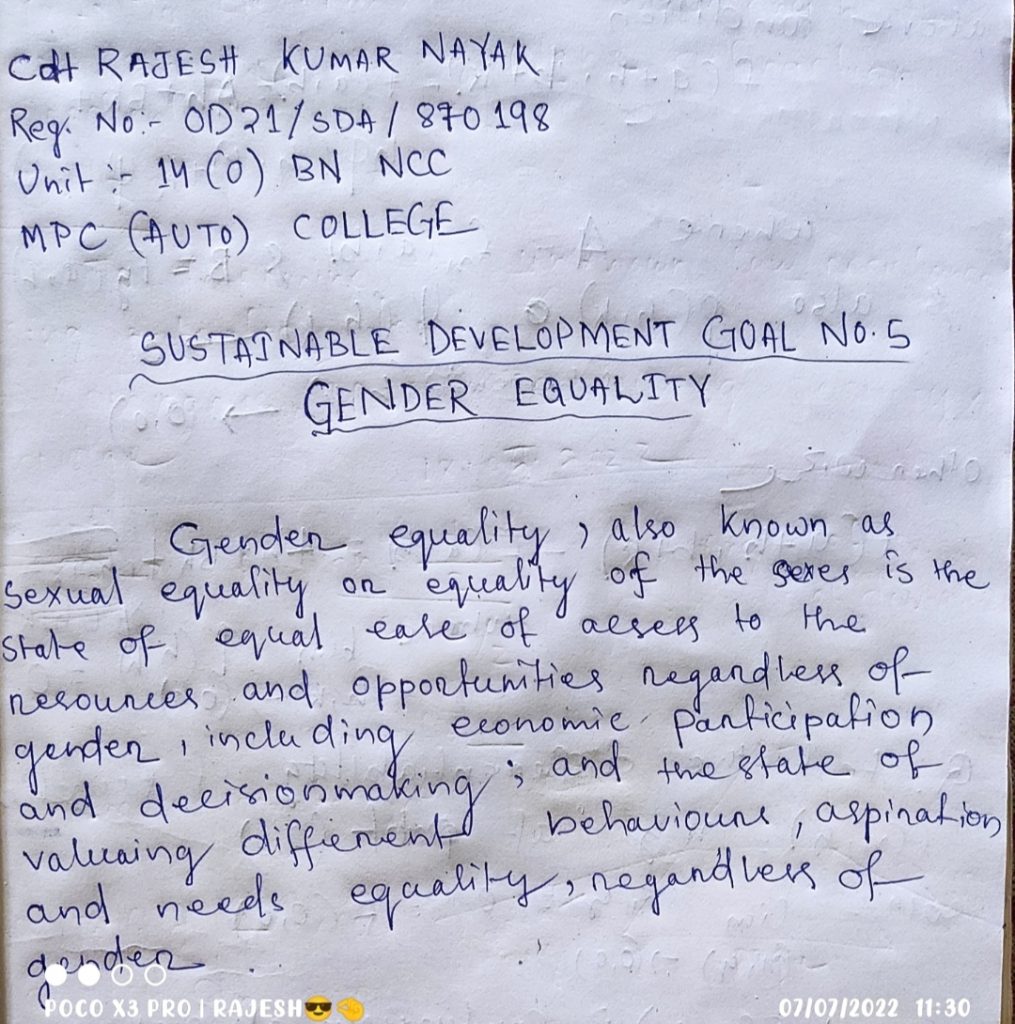 Cdt RAJESH KUMAR NAYAK
Reg. No:- OD21/SDA/870198
Unit :- 14 (O) BN NCC
MPC (AUTO) COLLEGE
SUSTAINABLE DEVELOPMENT GOAL No.5
GENDER EQUALITY
Gender equality, also known as
sexual equality or equality of the sexes is the
state of equal ease of acsess to the
resources and opportunities regardless of
gender, including economic participation
and decisionmaking; and the state of
valuaing different behaviours, aspiration
and needs equality, regardless of
gender.
POCO X3 PRO | RAJESH😎🤏
07/07/2022 11:30